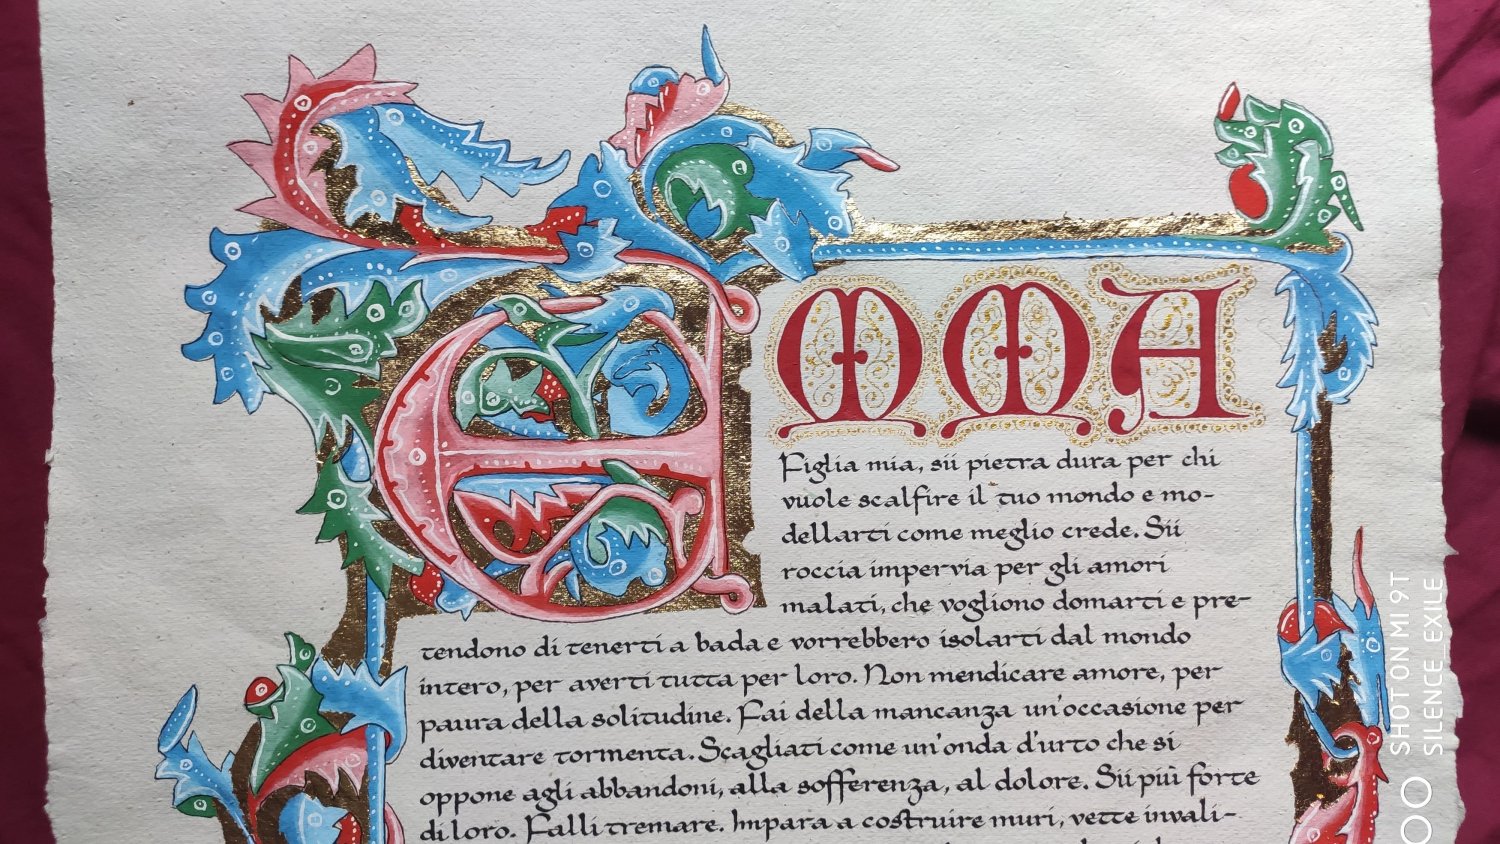 EMMA
Figlia mia, sii pietra dura per chi
vuole scalfire il tuo mondo e mo-
dellarti come meglio crede. Sii
roccia impervia per gli amori
malati, che vogliono domarti e pre-
tendono di tenerti a bada e vorrebbero isolarti dal mondo
intero, per averti tutta per loro. Non mendicare amore, per
paura della solitudine. Fai della mancanza un'occasione per
diventare tormenta. Scagliati come un'onda d'urto che si
oppone agli abbandoni, alla sofferenza, al dolore. Sii più forte
di loro. Falli tremare. Impara a costruire muri, vette invali-
SHOT ON MI 9T
SILENCE_EXILE